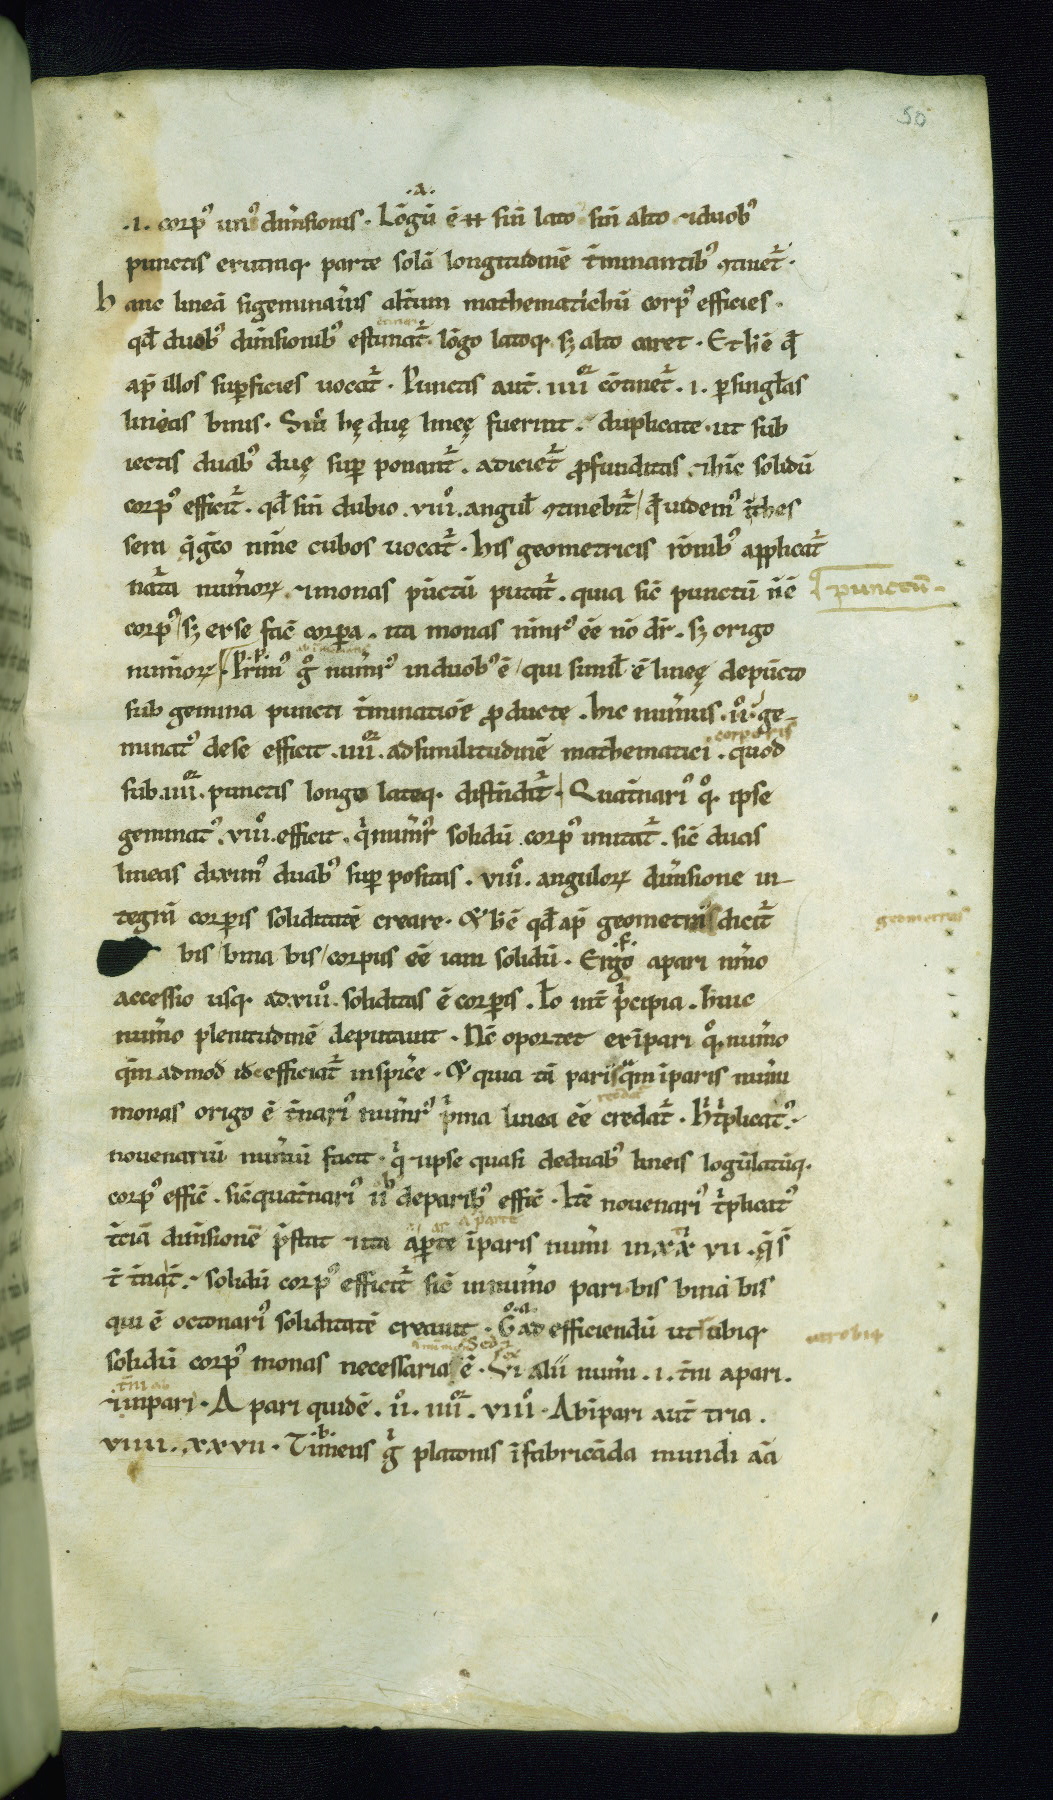 50
.a.
.i. corpꝰ unꝰ dim̄sionis. Lōgū ē ħ sin̄ lato sin̄ alto ⁊ duobꝰ
punctis ex utraq; parte solā longitudinē t̄minantibꝰ ꝯtinet᷑.
hanc lineā si geminaūis alt̄um mathematichū corpꝰ efficies.
qđ duobꝰ dim̄sionibꝰ estimat᷑ lōgo latoq; sꝫ alto caret. Et h̄ ē qđ
ap̄ illos suꝑficies uocat᷑. Punctis aut̄ .iiiiᵒʳ cōtinet᷑ .i. ꝑ singl̄as
lineas binis. Si ū hę duę lineę fuerint. duplicate ut sub
iectis duabꝰ duę suꝑ ponant᷑. adiciet᷑ ꝓfunditas ⁊ hīc solidū
corpꝰ efficit᷑. qđ sin̄ dubio .viiiᵒ. angul̄ ꝯtinebit᷑ / qđ uidemꝰ ī thes
sera q̄ gᵉco noīe cubos uocat᷑. his geometricis rōnibꝰ applicat᷑
nat̄a num̄oꝝ ⁊ monas pūctū putat᷑. quia sic̄ punctū n̄ ē
punctū.
corpꝰ / sꝫ ex se fac̄ corpora. ita monas num̄ꝰ eē nō dr̄. sꝫ origo
num̄oꝝ. Primꝰ gͦ num̄ꝰ in duobꝰ ē / qui simil̄ ē lineę de pūcto
sub gemina puncti t̄minatiōe ꝓducte. hic num̄us .iiᵒ. ge-
corporis
minatꝰ de se efficit .iiiiᵒʳ. ad similitudinē mathematici. quod
sub .iiiiᵒʳ. punctis longo latoq; distēdit᷑. Quat̄narꝰ qͦq; ipse
geminatꝰ .viiiᵒ. efficit. qͥ num̄ꝰ solidū corpꝰ imitat᷑. sic̄ duas
lineas diximꝰ duabꝰ suꝑ positas .viiiᵒ. anguloꝝ dim̄sione in-
tegrā corporis soliditatē creare. Et h̄ ē qđ ap̄ geometras dicit᷑
geometras
bis / bina bis / corpus eē iam solidū. Ergo a pari num̄o
accessio usq; ad .viiiᵒ. soliditas ē corporis. Io int̄ pͥcipia. huic
num̄o plenitudinē deputauit. Nc̄ oportet ex īpari qͦq; num̄o
qm̄ admod̄ id efficiat᷑ inspic̄e. Et quia tā paris qͣm īparis num̄i
monas origo ē t̄narꝰ num̄ꝰ pͥma linea eē credat᷑. h̄ t̄plicatꝰ.
nouenariū num̄ū facit. qͥ ⁊ ipse quasi de duabꝰ lineis logū latūq;
corpꝰ effic̄. sic̄ quat̄narꝰ iiꝰ de paribꝰ effic̄. It̄ē nouenarꝰ tͥplicatꝰ
a parte
t̄ciā dim̄sionē p̄stat ⁊ ita a parte īparis num̄i in xx vii. q̄ s̄
t̄ t̄na t̄. solidū corpꝰ efficit᷑ sic̄ in num̄o pari bis bina bis
qui ē octonarꝰ soliditatē creauit. G̊ ad efficiendū utrubiq;
utrobiq;
solidū corpꝰ monas necessaria ē. Vi alii num̄i .i. t̄ni a pari.
⁊ inpari. A pari quidē .iiᵒ. iiiiᵒʳ. viiiᵒ. Ab īpari aut̄ tria.
viiii. xxvii. Timeus gͥ platonis ī fabricāda mundi aīa